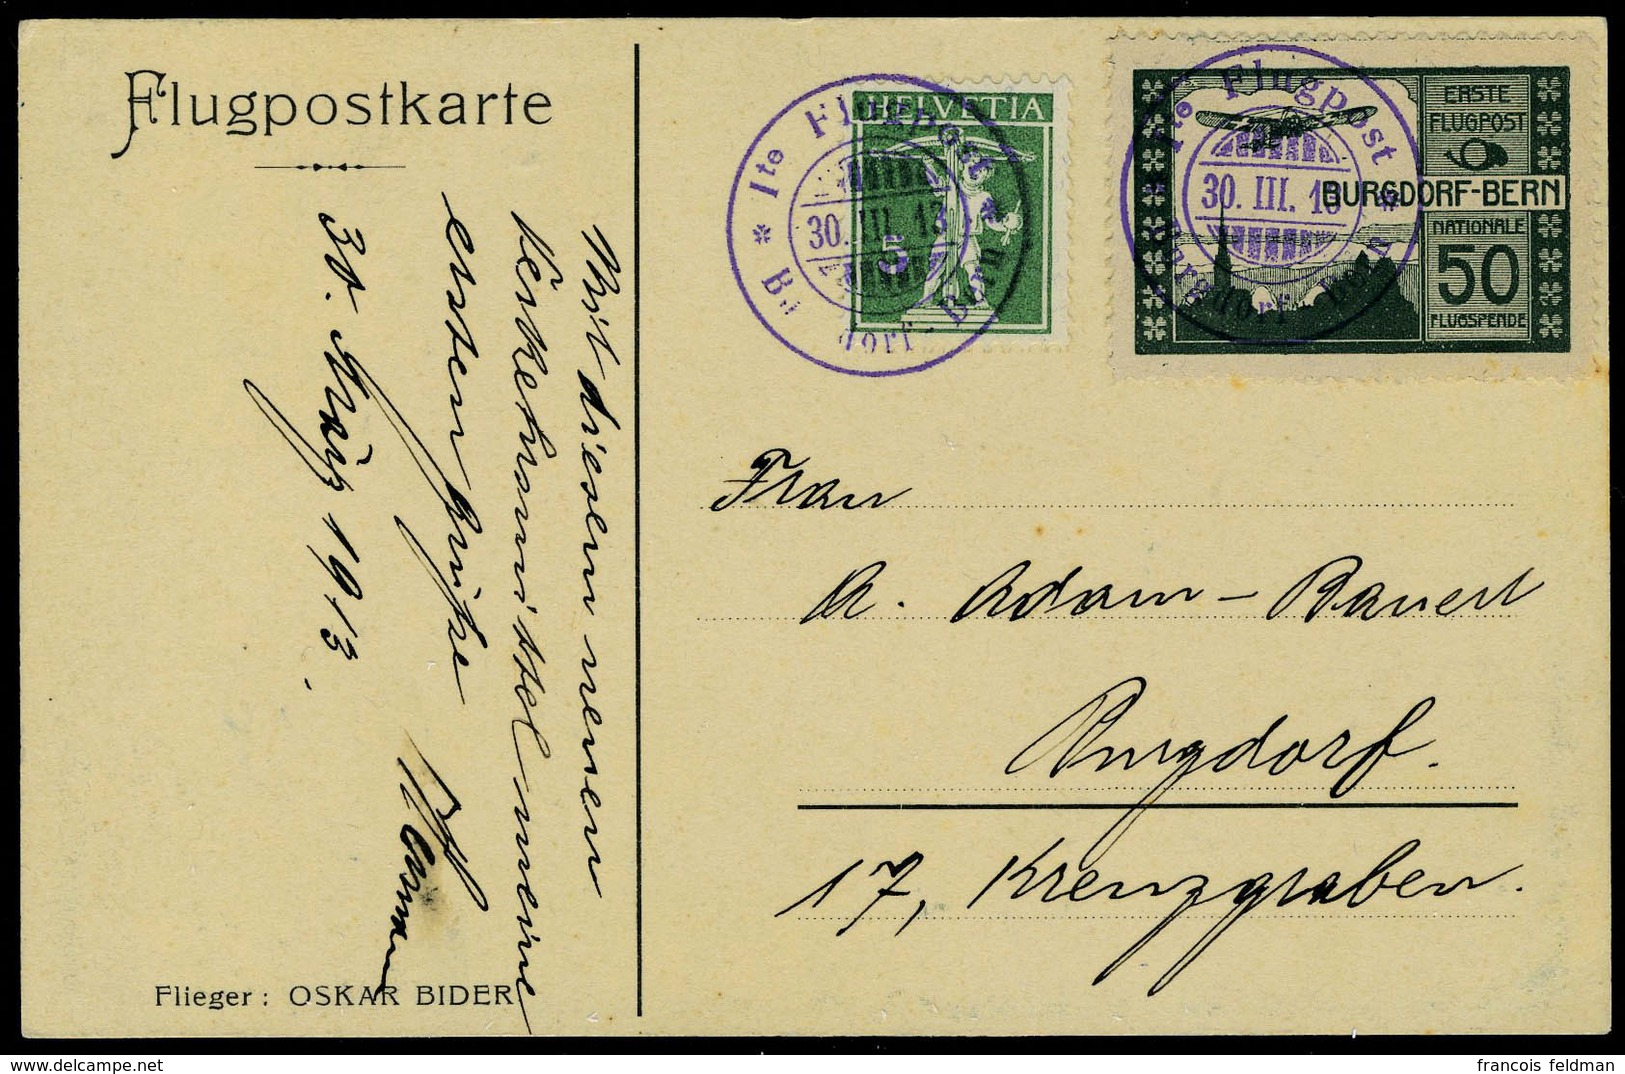 Flugpostkarte
Mit diesem neuen
Verkehrsmittel meine
ersten Grüsse
30. März 1913.
Flieger: OSKAR BIDER
HELVETIA
5
Ite Flugpost
30. III. 13
dorf-Bern
ERSTE
FLUGPOST
BURGDORF-BERN
NATIONALE
50
FLUGSPENDE
Ite Flugpost
30. III. 13
Burgdorf-Bern
Frau
A. Adam-Bauert
Burgdorf.
17, Kreuzgraben.
delcampe.net
francois feldman